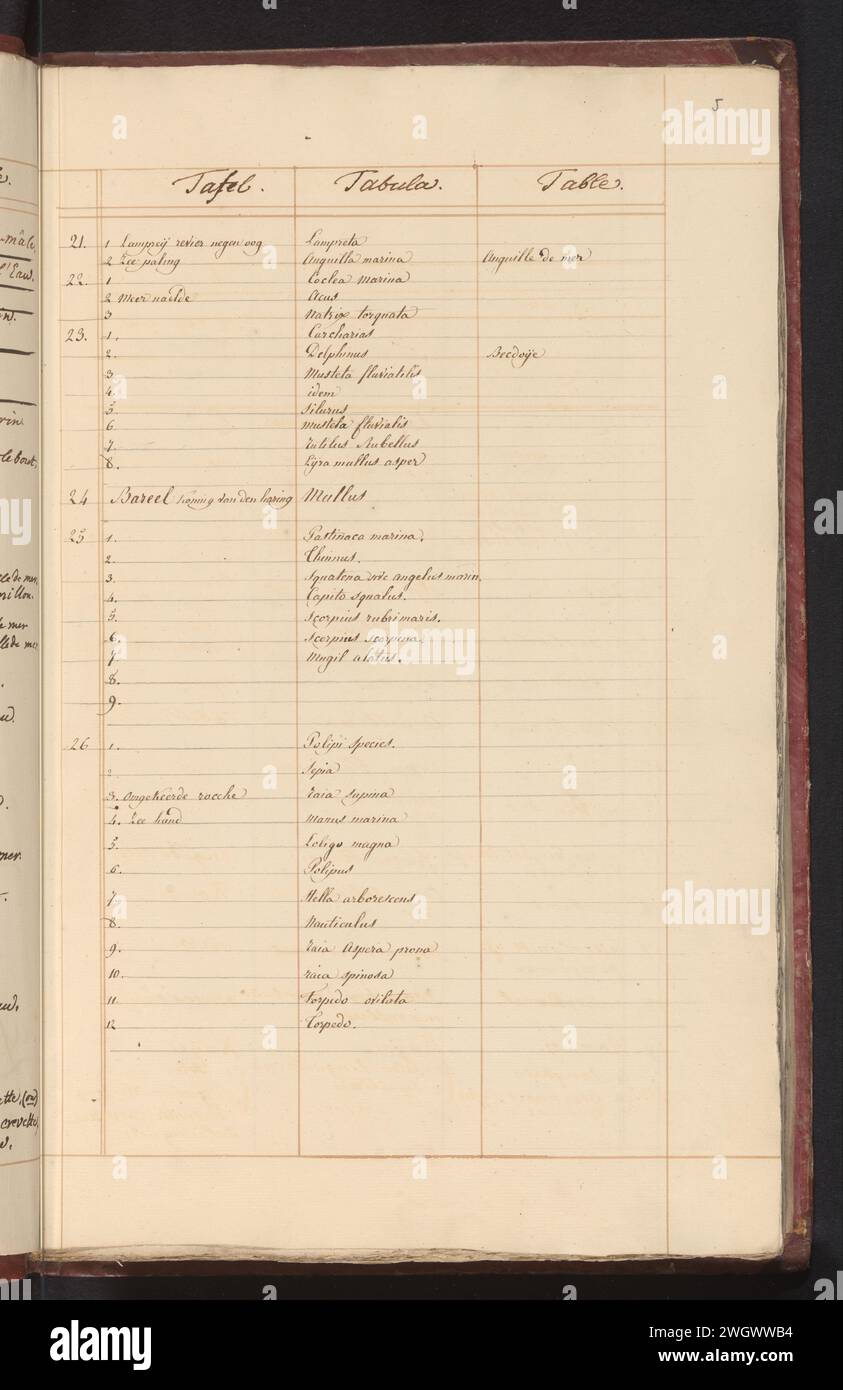 5
Tafel. Tabula. Table.
21. 1 Lampreij revier negen oog Lampreta
2 Zee paling Anguilla marina Anguille de mer
22. 1 Coclea marina
2 Meer naelde Acus
3 Natrix torquata
23. 1. Carcharias
2. Delphinus
3 Mustela fluviatilis
4. idem
5. Silurus
6. mustela fluvialis
7. rutilus Rubellus
8. Lijra mullus asper
24 Bareel Koning van den haring Mullus
25 1. Pastinaca marina.
2. Thinnus.
3. Squatena sive angelus marin.
4. Capito squalus.
5. Scorpius rubri maris.
6. Scorpius scorpena
7. Mugil alatus.
8.
9.
26 1. Polipi species.
2 Sepia
3. Omgekeerde rocche raia supina
4. Zee hand manus marina
5. Loligo magna
6. Polipus
7 Stella arborescens
8. Nauticulus
9. raia Aspera prona
10. raia spinosa
11 Torpedo
12 Torpedo.
mâle.
l'Eau.
(ou)
crevette,
alamy
Image ID: 2WGWWB4
www.alamy.com